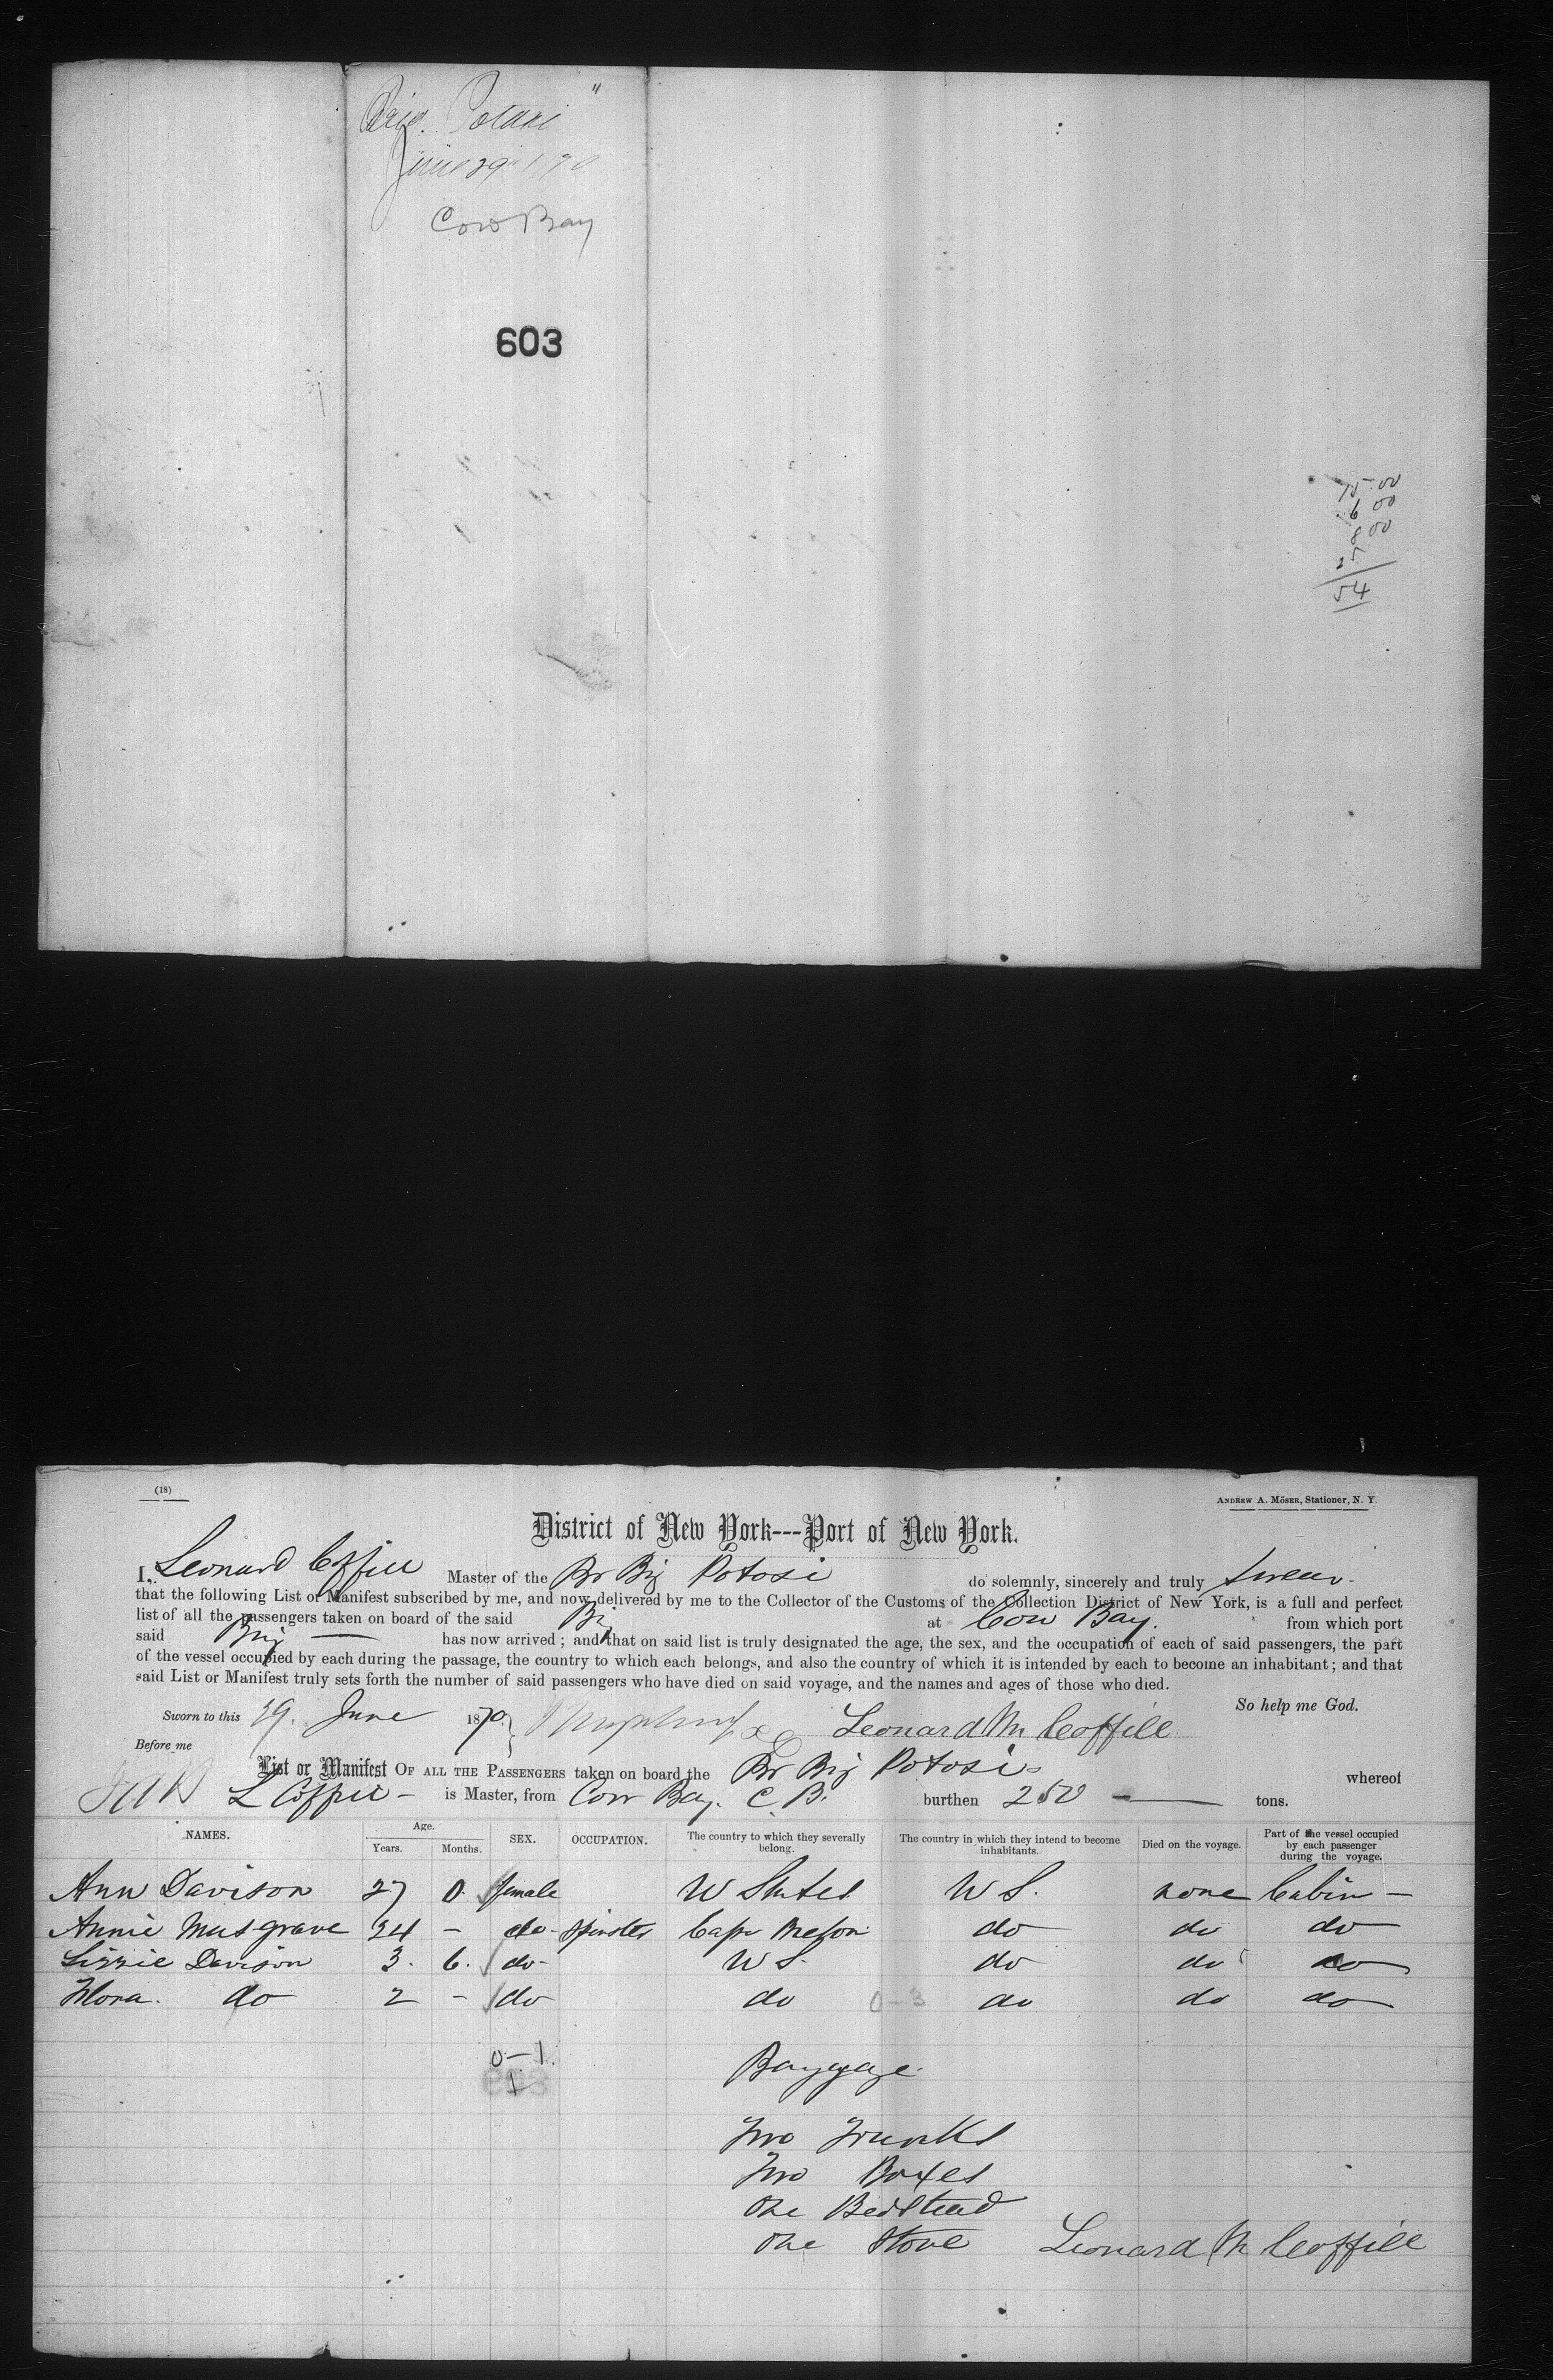 Brig. Potosi"
June 29" 1870
Cow Bay
603
15.00
6 00
8 00
25
54
(18)
ANDREW A. MÖSER, Stationer, N. Y.
District of New York---Port of New York.
I, Leonard Coffill Master of the Br Brig Potosi do solemnly, sincerely and truly swear
that the following List or Manifest subscribed by me, and now delivered by me to the Collector of the Customs of the Collection District of New York, is a full and perfect
list of all the passengers taken on board of the said Brig at Cow Bay. from which port
said Brig — has now arrived; and that on said list is truly designated the age, the sex, and the occupation of each of said passengers, the part
of the vessel occupied by each during the passage, the country to which each belongs, and also the country of which it is intended by each to become an inhabitant; and that
said List or Manifest truly sets forth the number of said passengers who have died on said voyage, and the names and ages of those who died.
So help me God.
Sworn to this 29. June 1870 Leonard M Coffill
Before me
List or Manifest OF ALL THE PASSENGERS taken on board the Br Brig Potosi whereof
L Coffill - is Master, from Cow Bay. C. B. burthen 250 — tons.
NAMES. Age. Years. Months. SEX. OCCUPATION. The country to which they severally belong. The country in which they intend to become inhabitants. Died on the voyage. Part of the vessel occupied by each passenger during the voyage.
Ann Davison 27 0. female U States U S. none Cabin —
Annie Musgrave 24 - do - Spinster Cape Breton do do do
Lizzie Davison 3. 6. do - U S. do do do
Flora. do 2 - do do 0-3 do do do
0-1.
1
Baggage
Two Trunks
Two Boxes
One Bedstead
One Stove Leonard M Coffill